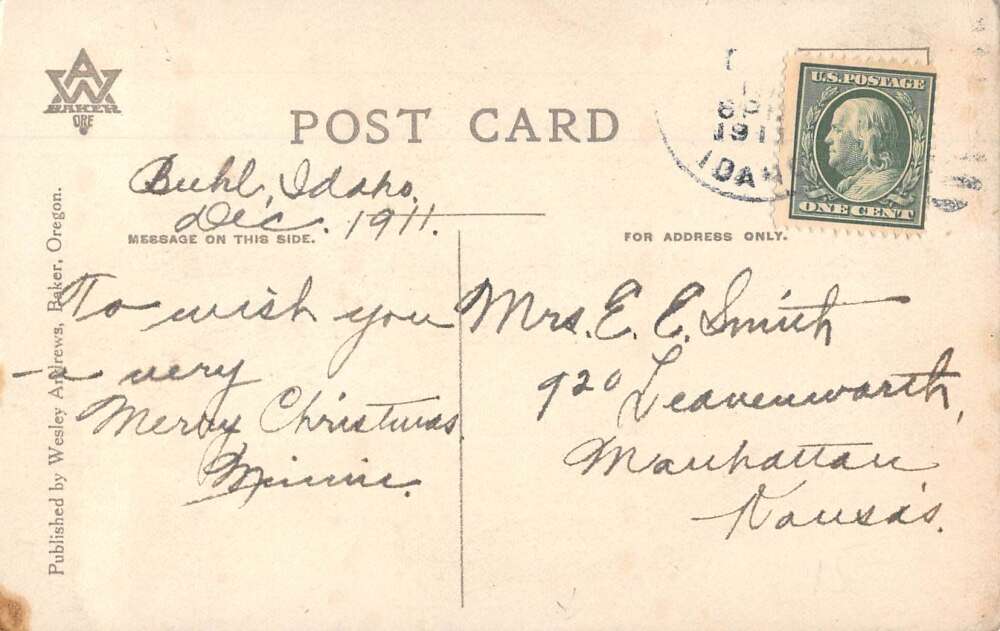 AW
BAKER
ORE
POST CARD
8 P
191
IDAHO
U.S. POSTAGE
ONE CENT
Buhl, Idaho,
Dec. 1911.
MESSAGE ON THIS SIDE.
FOR ADDRESS ONLY.
To wish you
a very
Merry Christmas
Minnie.
Mrs. E. E. Smith
920 Leavenworth,
Manhattan
Kansas.
Published by Wesley Andrews, Baker, Oregon.